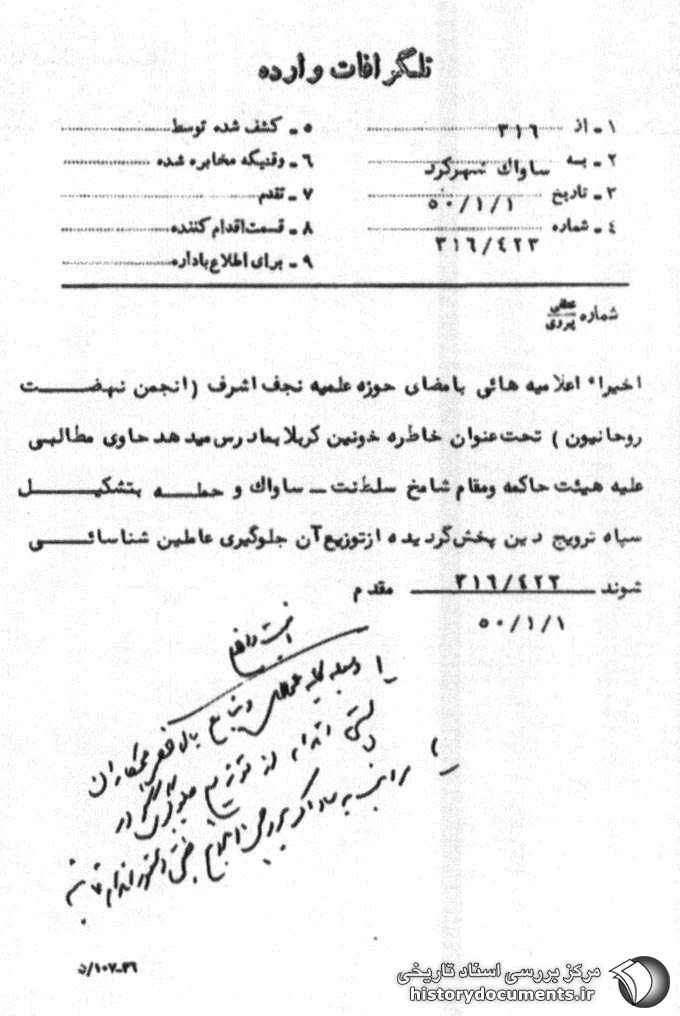 تلگرافات وارده
۱ ـ از ۳۱۶
۲ ـ به ساواك شهرکرد
۳ ـ تاریخ ۵۰/۱/۱
٤ ـ شماره ۳۱۶/٤۲۳
۵ ـ کشف شده توسط
۶ ـ وقتیکه مخابره شده
۷ ـ تقدم
۸ ـ قسمت اقدام کننده
۹ ـ برای اطلاع باداره
شماره عطفی پیروی
اخیراً اعلامیه هائی بامضای حوزه علمیه نجف اشرف (انجمن نهضت
روحانیون ) تحت عنوان خاطره خونین کربلا بمادرس میدهد حاوی مطالبی
علیه هیئت حاکمه ومقام شامخ سلطنت ـ ساواك و حمله بتشکیل
سپاه ترویج دین پخش گردیده ازتوزیع آن جلوگیری عاملین شناسائی
شوند ۳۱۶/٤۲۳ مقدم
۵۰/۱/۱
۱ـ وسیله کلیه عوامل و منابع
اقدام از توزیع جلوگیری
۲ـ مراتب به ساواک بروجن اعلام
۳۶-۱۰۷/ن
مرکز بررسی اسناد تاریخی
historydocuments.ir